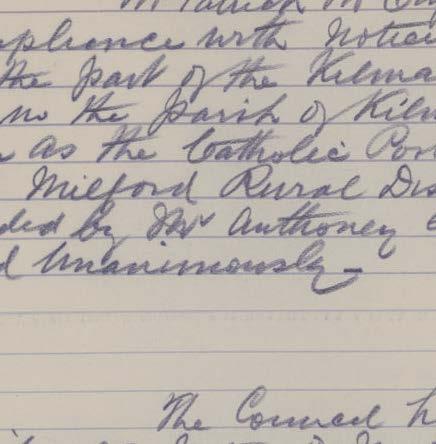 Mr Patrick Mc
mpliance with Notice
the part of the Kilma
no the Parish of Kil
as the Catholic Por
Milford Rural Dis
ded by Mr Anthoney
d Unanimously –
The Council h